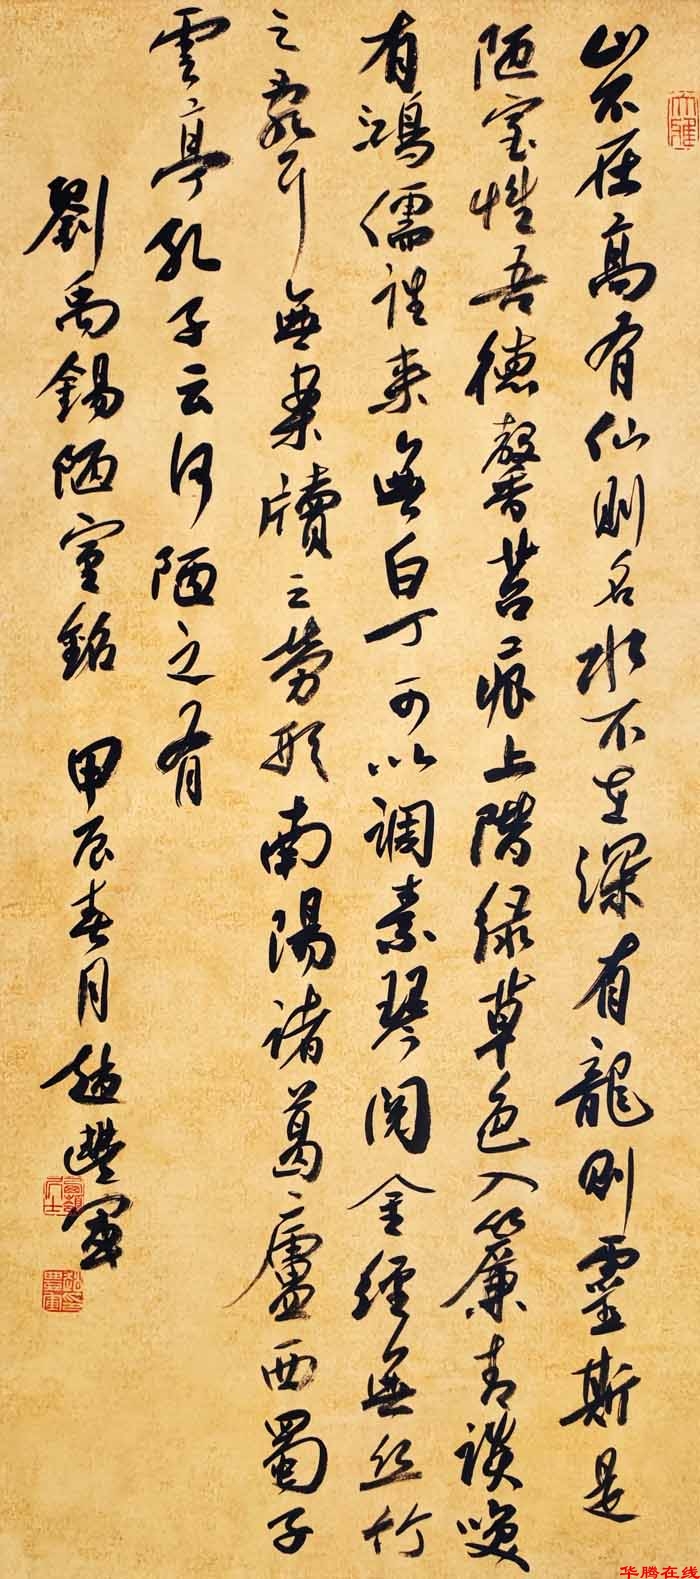 大雅
山不在高有仙則名水不在深有龍則靈斯是
陋室惟吾德馨苔痕上階緑草色入簾青談咲
有鴻儒往来無白丁可以調素琴閲金經無丝竹
之亂耳無案牘之勞形南陽諸葛廬西蜀子
雲亭孔子云何陋之有
劉禹錫陋室銘 甲辰春月趙豐
华腾在线